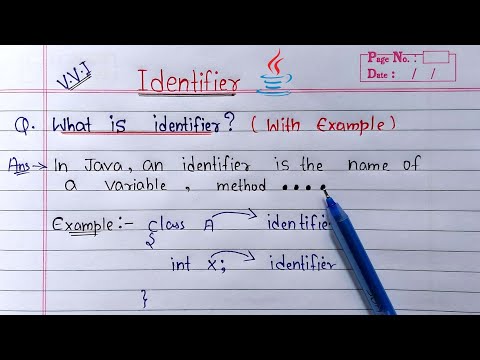 V.V.I
Identifier
Page No.:
Date : / /
Q. What is identifier? (With Example)
Ans → In Java, an identifier is the name of
a variable, method ••••
Example:- class A → identifier
{
int x; → identifier
}